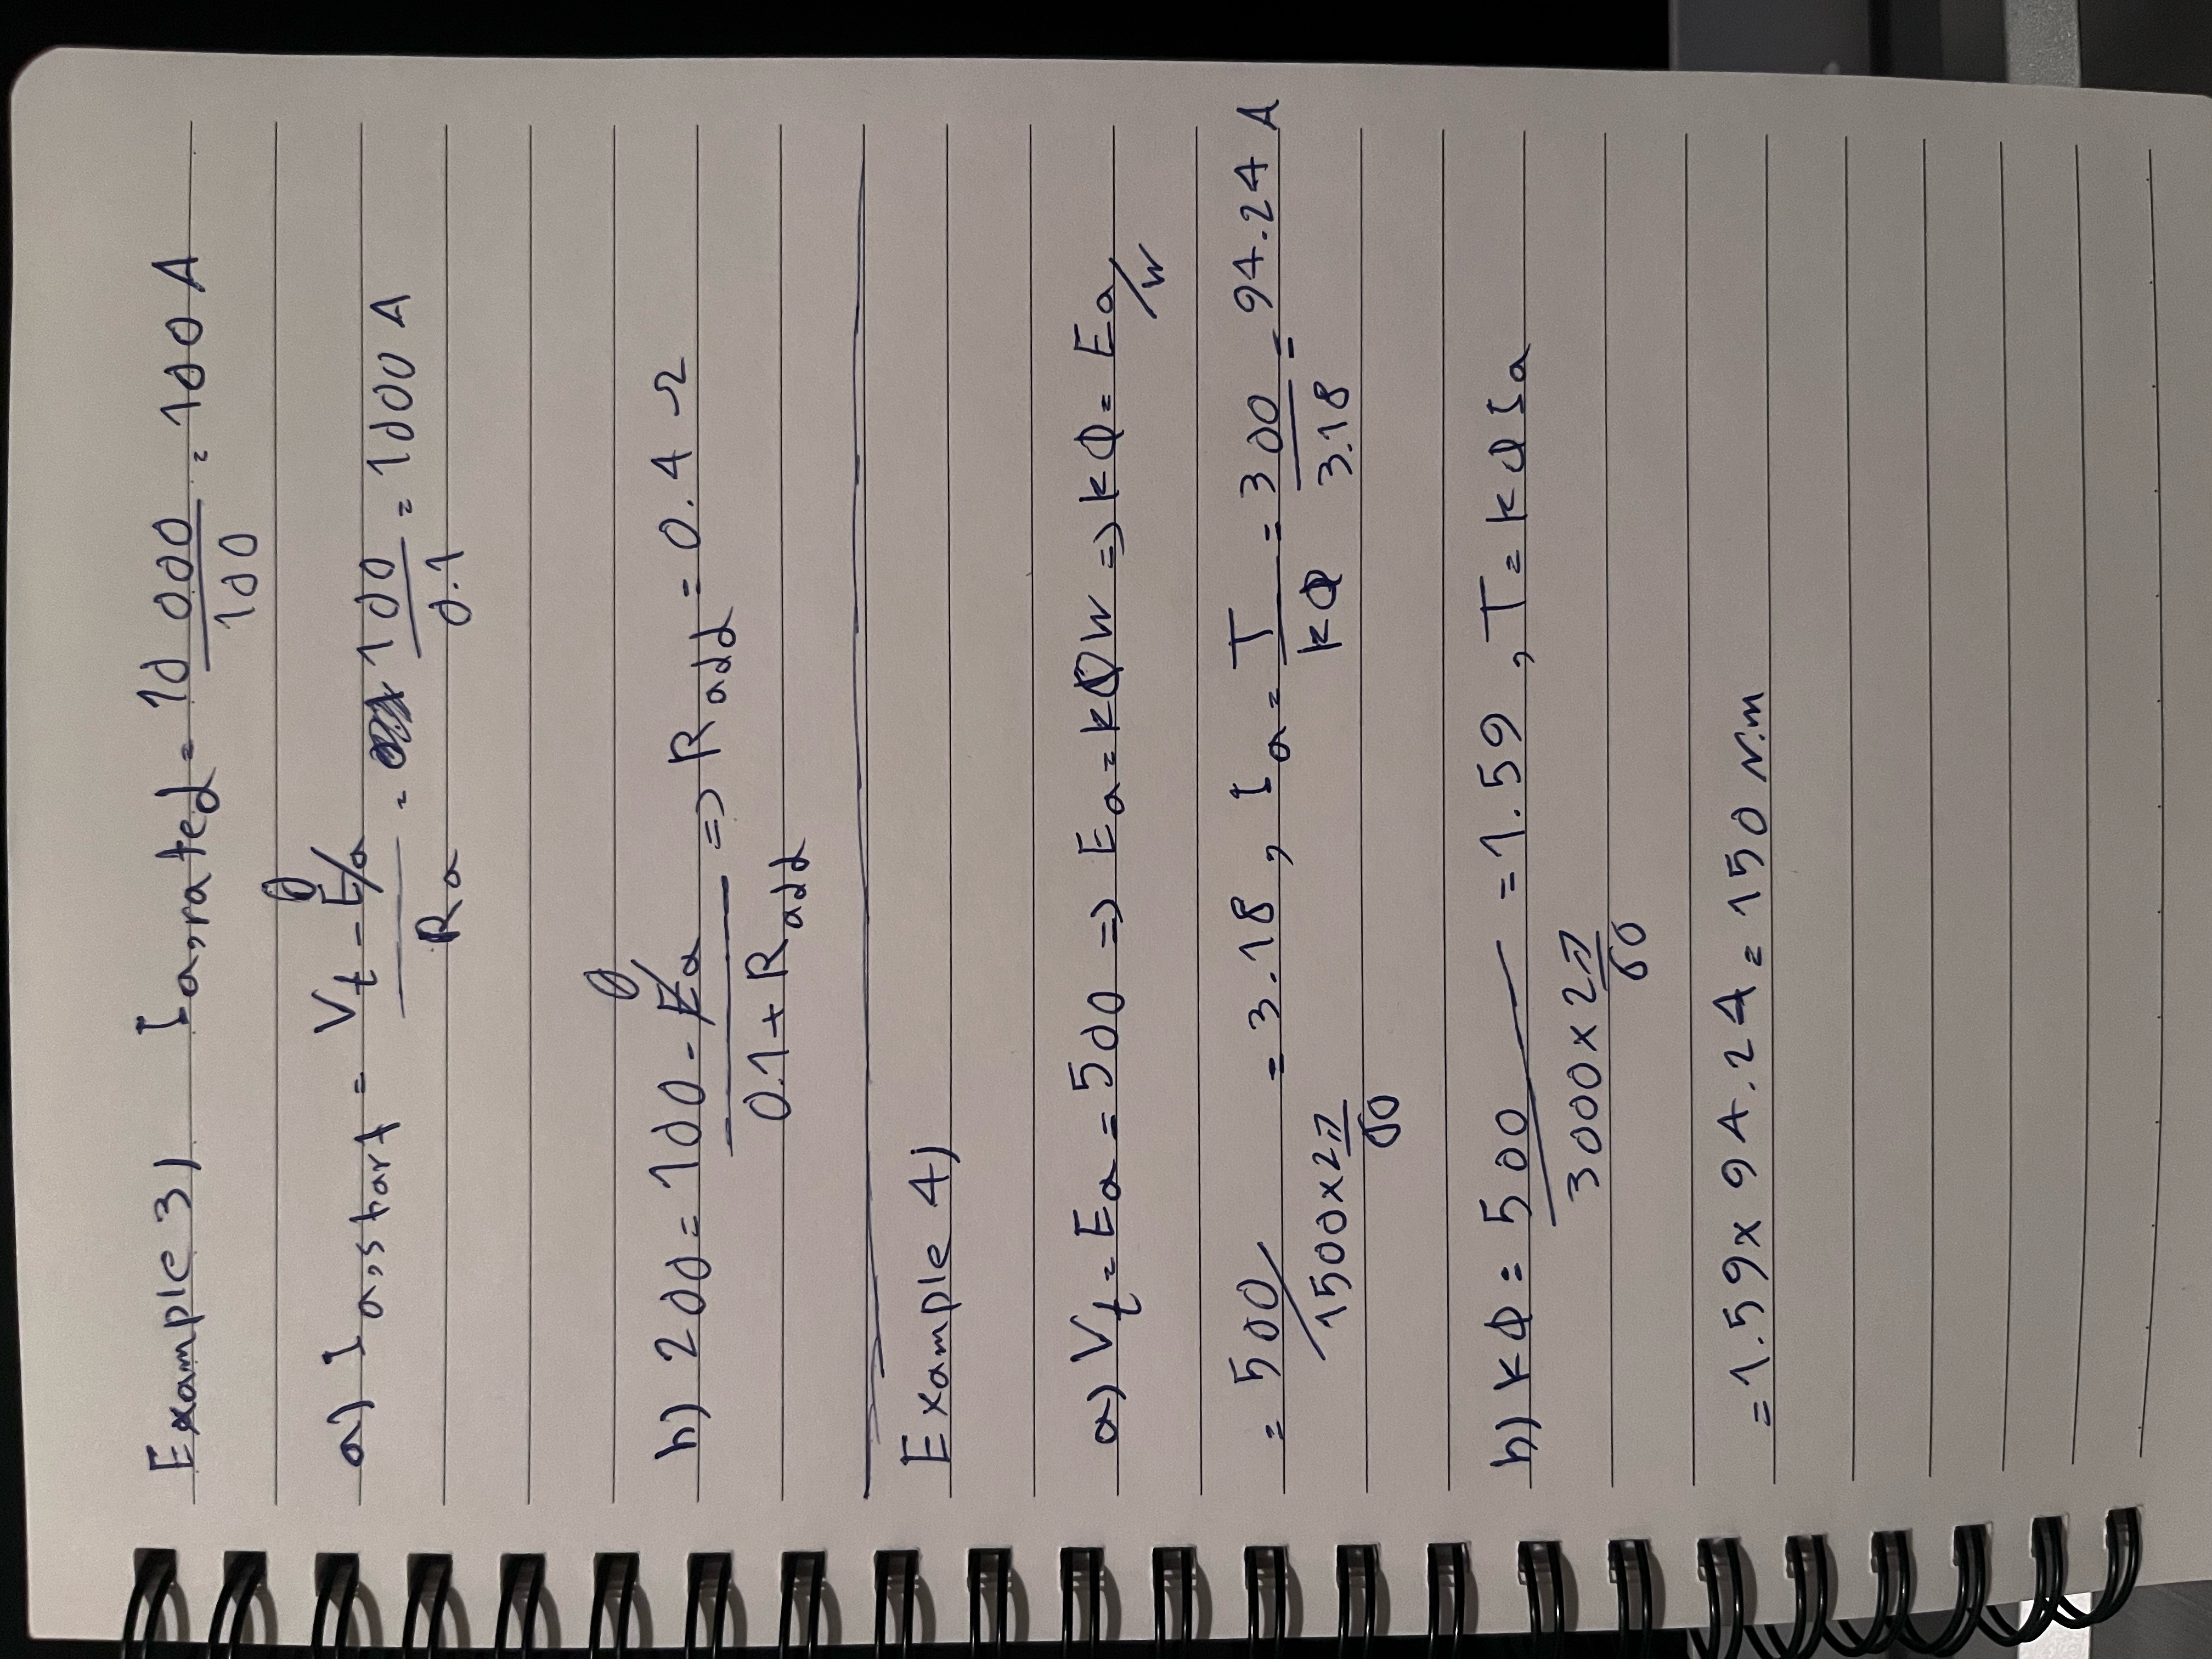 Example 3) Ia,rated = 10 000 / 100 = 100 A
a) Ia,start = (Vt - Ea) / Ra = 100 / 0.1 = 1000 A
0
b) 200 = (100 - Ea) / (0.1 + Radd) => Radd = 0.4 Ω
0
Example 4)
a) Vt = Ea = 500 => Ea = kΦW => kΦ = Ea/W
= 500 / (1500 × 2π/60) = 3.18 , Ia = T / kΦ = 300 / 3.18 = 94.24 A
b) kΦ = 500 / (3000 × 2π/60) = 1.59 , T = kΦIa
= 1.59 × 94.24 = 150 N.m